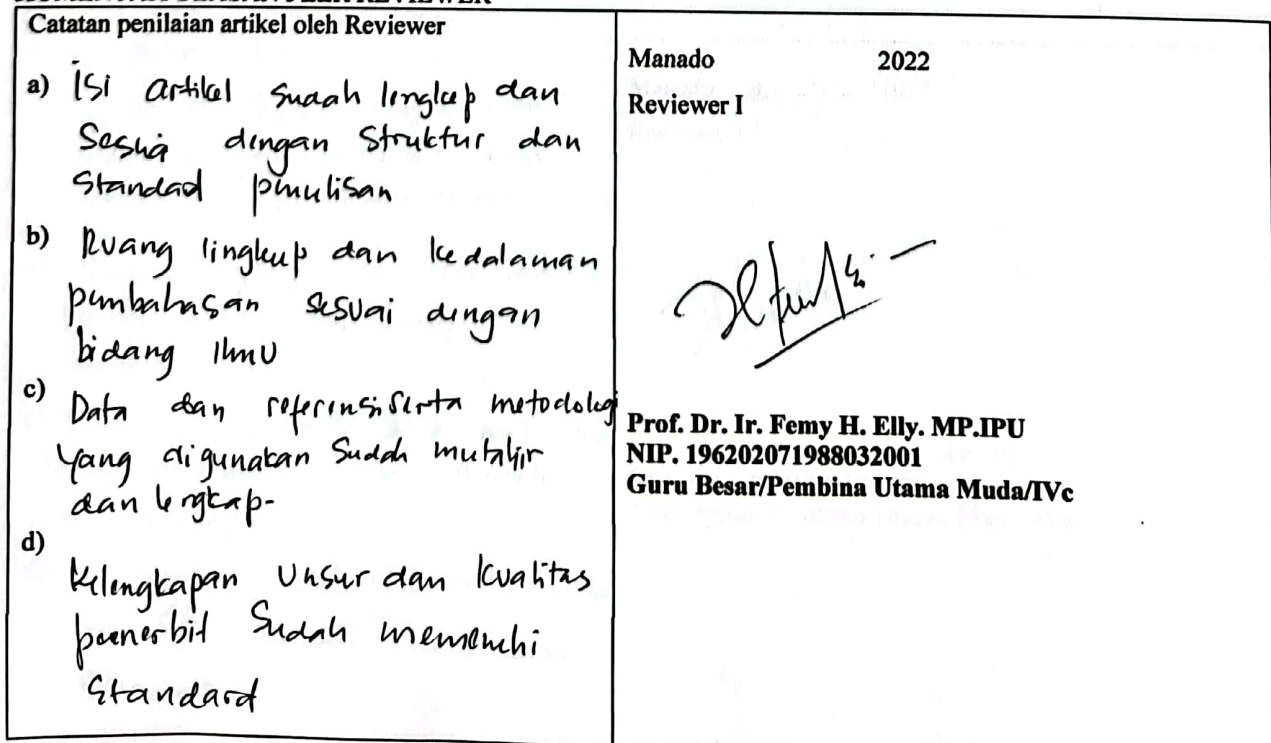 Catatan penilaian artikel oleh Reviewer
a) Isi artikel sudah lengkap dan
Sesuai dengan Struktur dan
Standad penulisan
b) Ruang lingkup dan kedalaman
pembahasan sesuai dengan
bidang Ilmu
c) Data dan referensi serta metodologi
yang digunakan Sudah mutahir
dan lengkap-
d)
Kelengkapan Unsur dan Kualitas
penerbit Sudah memenuhi
Standard
Manado 2022
Reviewer I
Prof. Dr. Ir. Femy H. Elly. MP.IPU
NIP. 196202071988032001
Guru Besar/Pembina Utama Muda/IVc